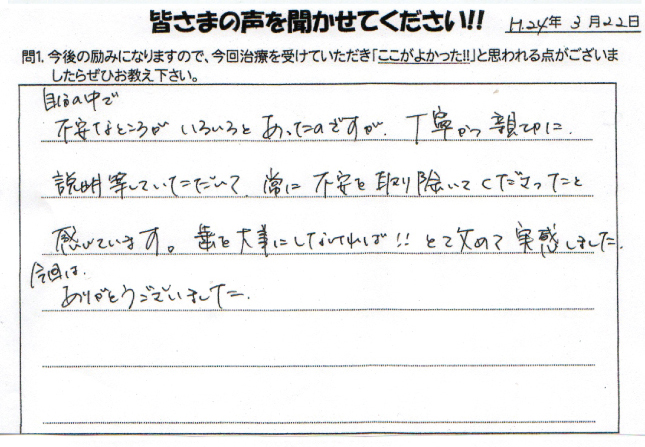 皆さまの声を聞かせてください!!
H.24年 3月22日
問1. 今後の励みになりますので、今回治療を受けていただき「ここがよかった!!」と思われる点がございま
したらぜひお教え下さい。
自分の中で
不安なところがいろいろとあったのですが、丁寧かつ親切に
説明等していただいて、常に不安を取り除いてくださったと
感じています。歯を大事にしなければ!!と改めて実感しました。
今回は、
ありがとうございました。